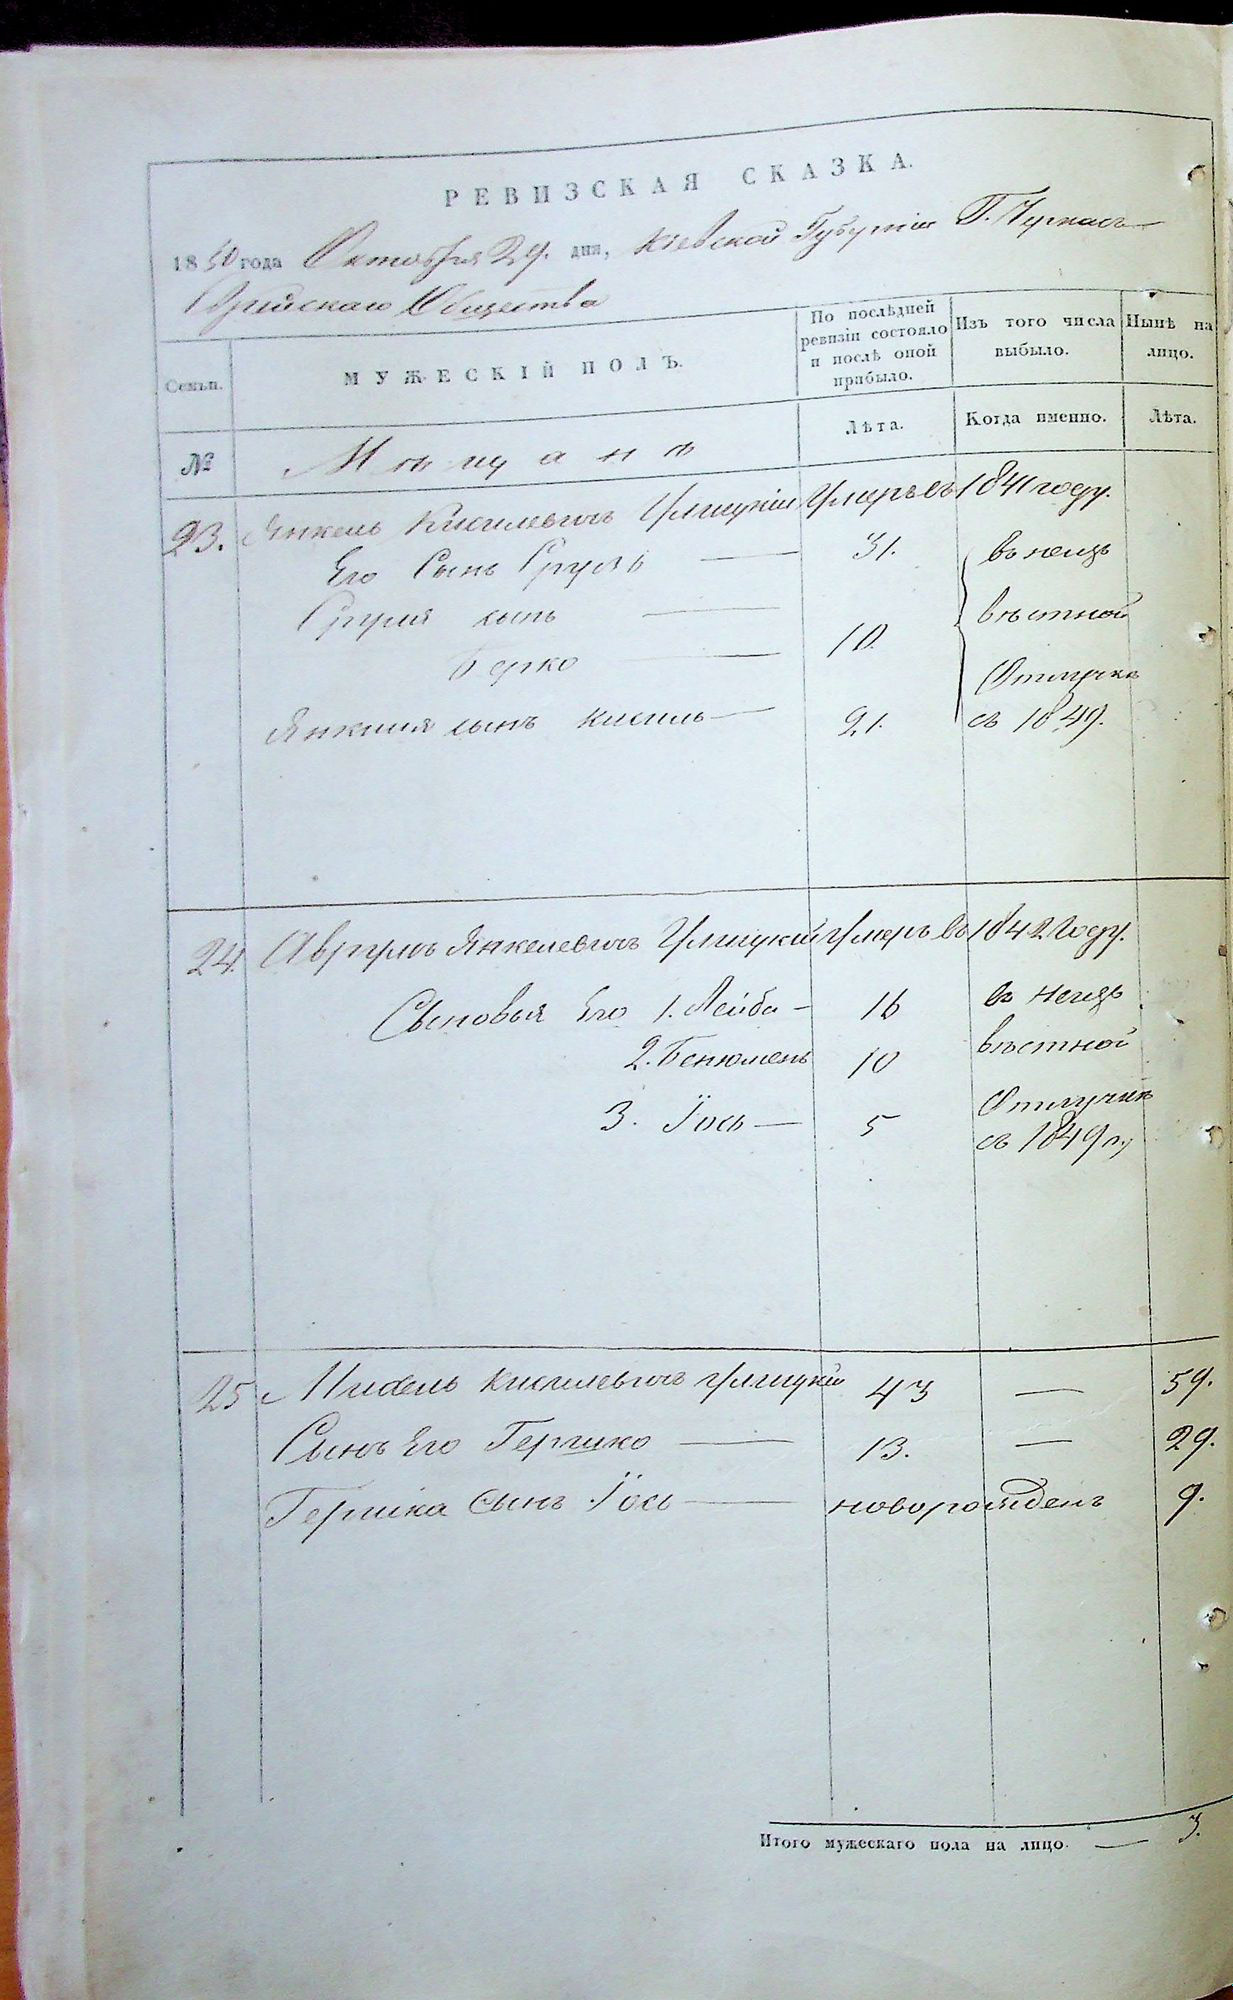 РЕВИЗСКАЯ СКАЗКА.
1850 года Октября 29. дня, Кіевской Губерніи Г. Черкасъ
Еврейскаго Общества
Семьи.
МУЖЕСКІЙ ПОЛЪ.
По послѣдней ревизіи состояло и послѣ оной прибыло.
Изъ того числа выбыло.
Нынѣ на лицо.
№
Мѣщанѣ
Лѣта.
Когда именно.
Лѣта.
23. Янкель Кисилевичъ Улицкій Умеръ въ 1841 году.
Его Сынъ Сруль — 31. въ неиз
Сруля сынъ — вѣстной
Берко — 10. Отлучкѣ
Янкиля сынъ Кисиль — 21. съ 1849.
24. Аврумъ Янкелевичъ Улицкій умеръ въ 1842 году.
Сыновья Его 1. Лейба — 16 въ неиз
2. Бенюмень 10 вѣстной
3. Іось — 5 Отлучкѣ
съ 1849 г.
25 Кисилевичъ Улицкій 43 — 59.
Сынъ Его Гершко — 13. — 29.
Гершка Сынъ Іось — новорожденъ 9.
Итого мужескаго пола на лицо — 3.